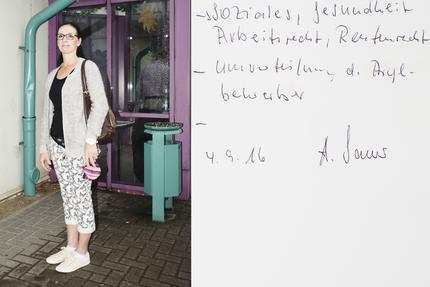 - Soziales, Gesundheit
Arbeitsrecht, Rentenrecht
- Umverteilung d. Asyl-
bewerber
-
4.9.16 A.